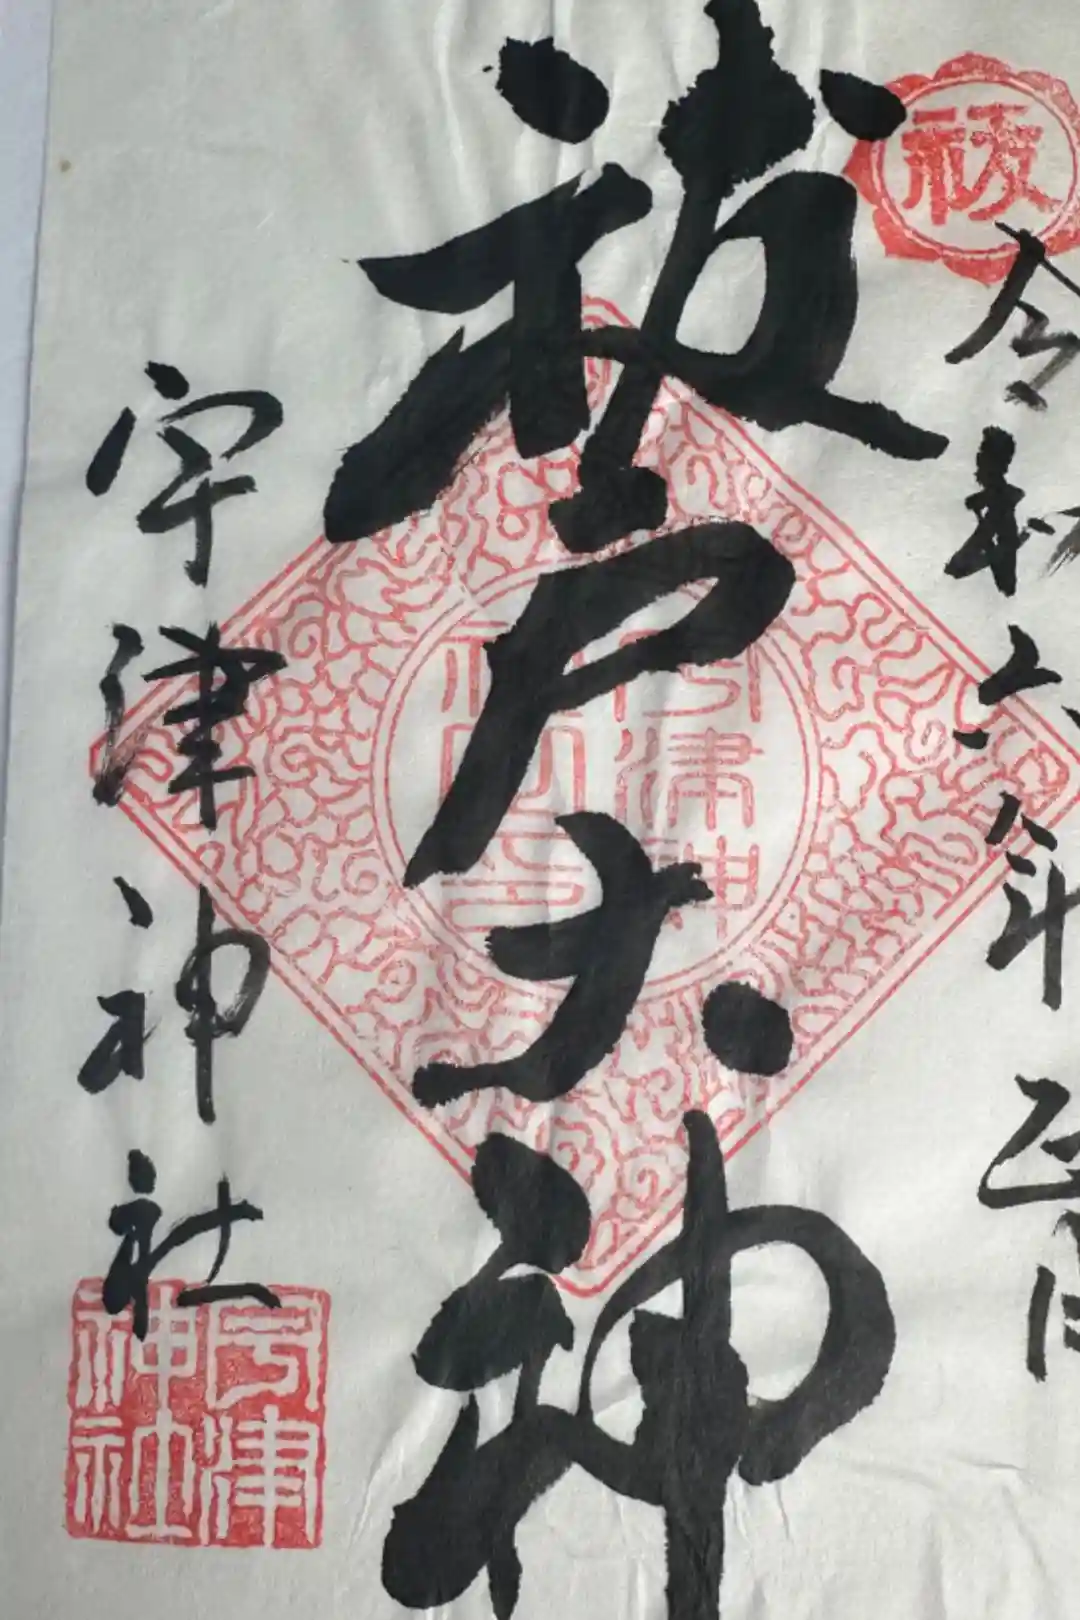 祓
令和六年正月
祓戸大神
宇津神社
宇津神社